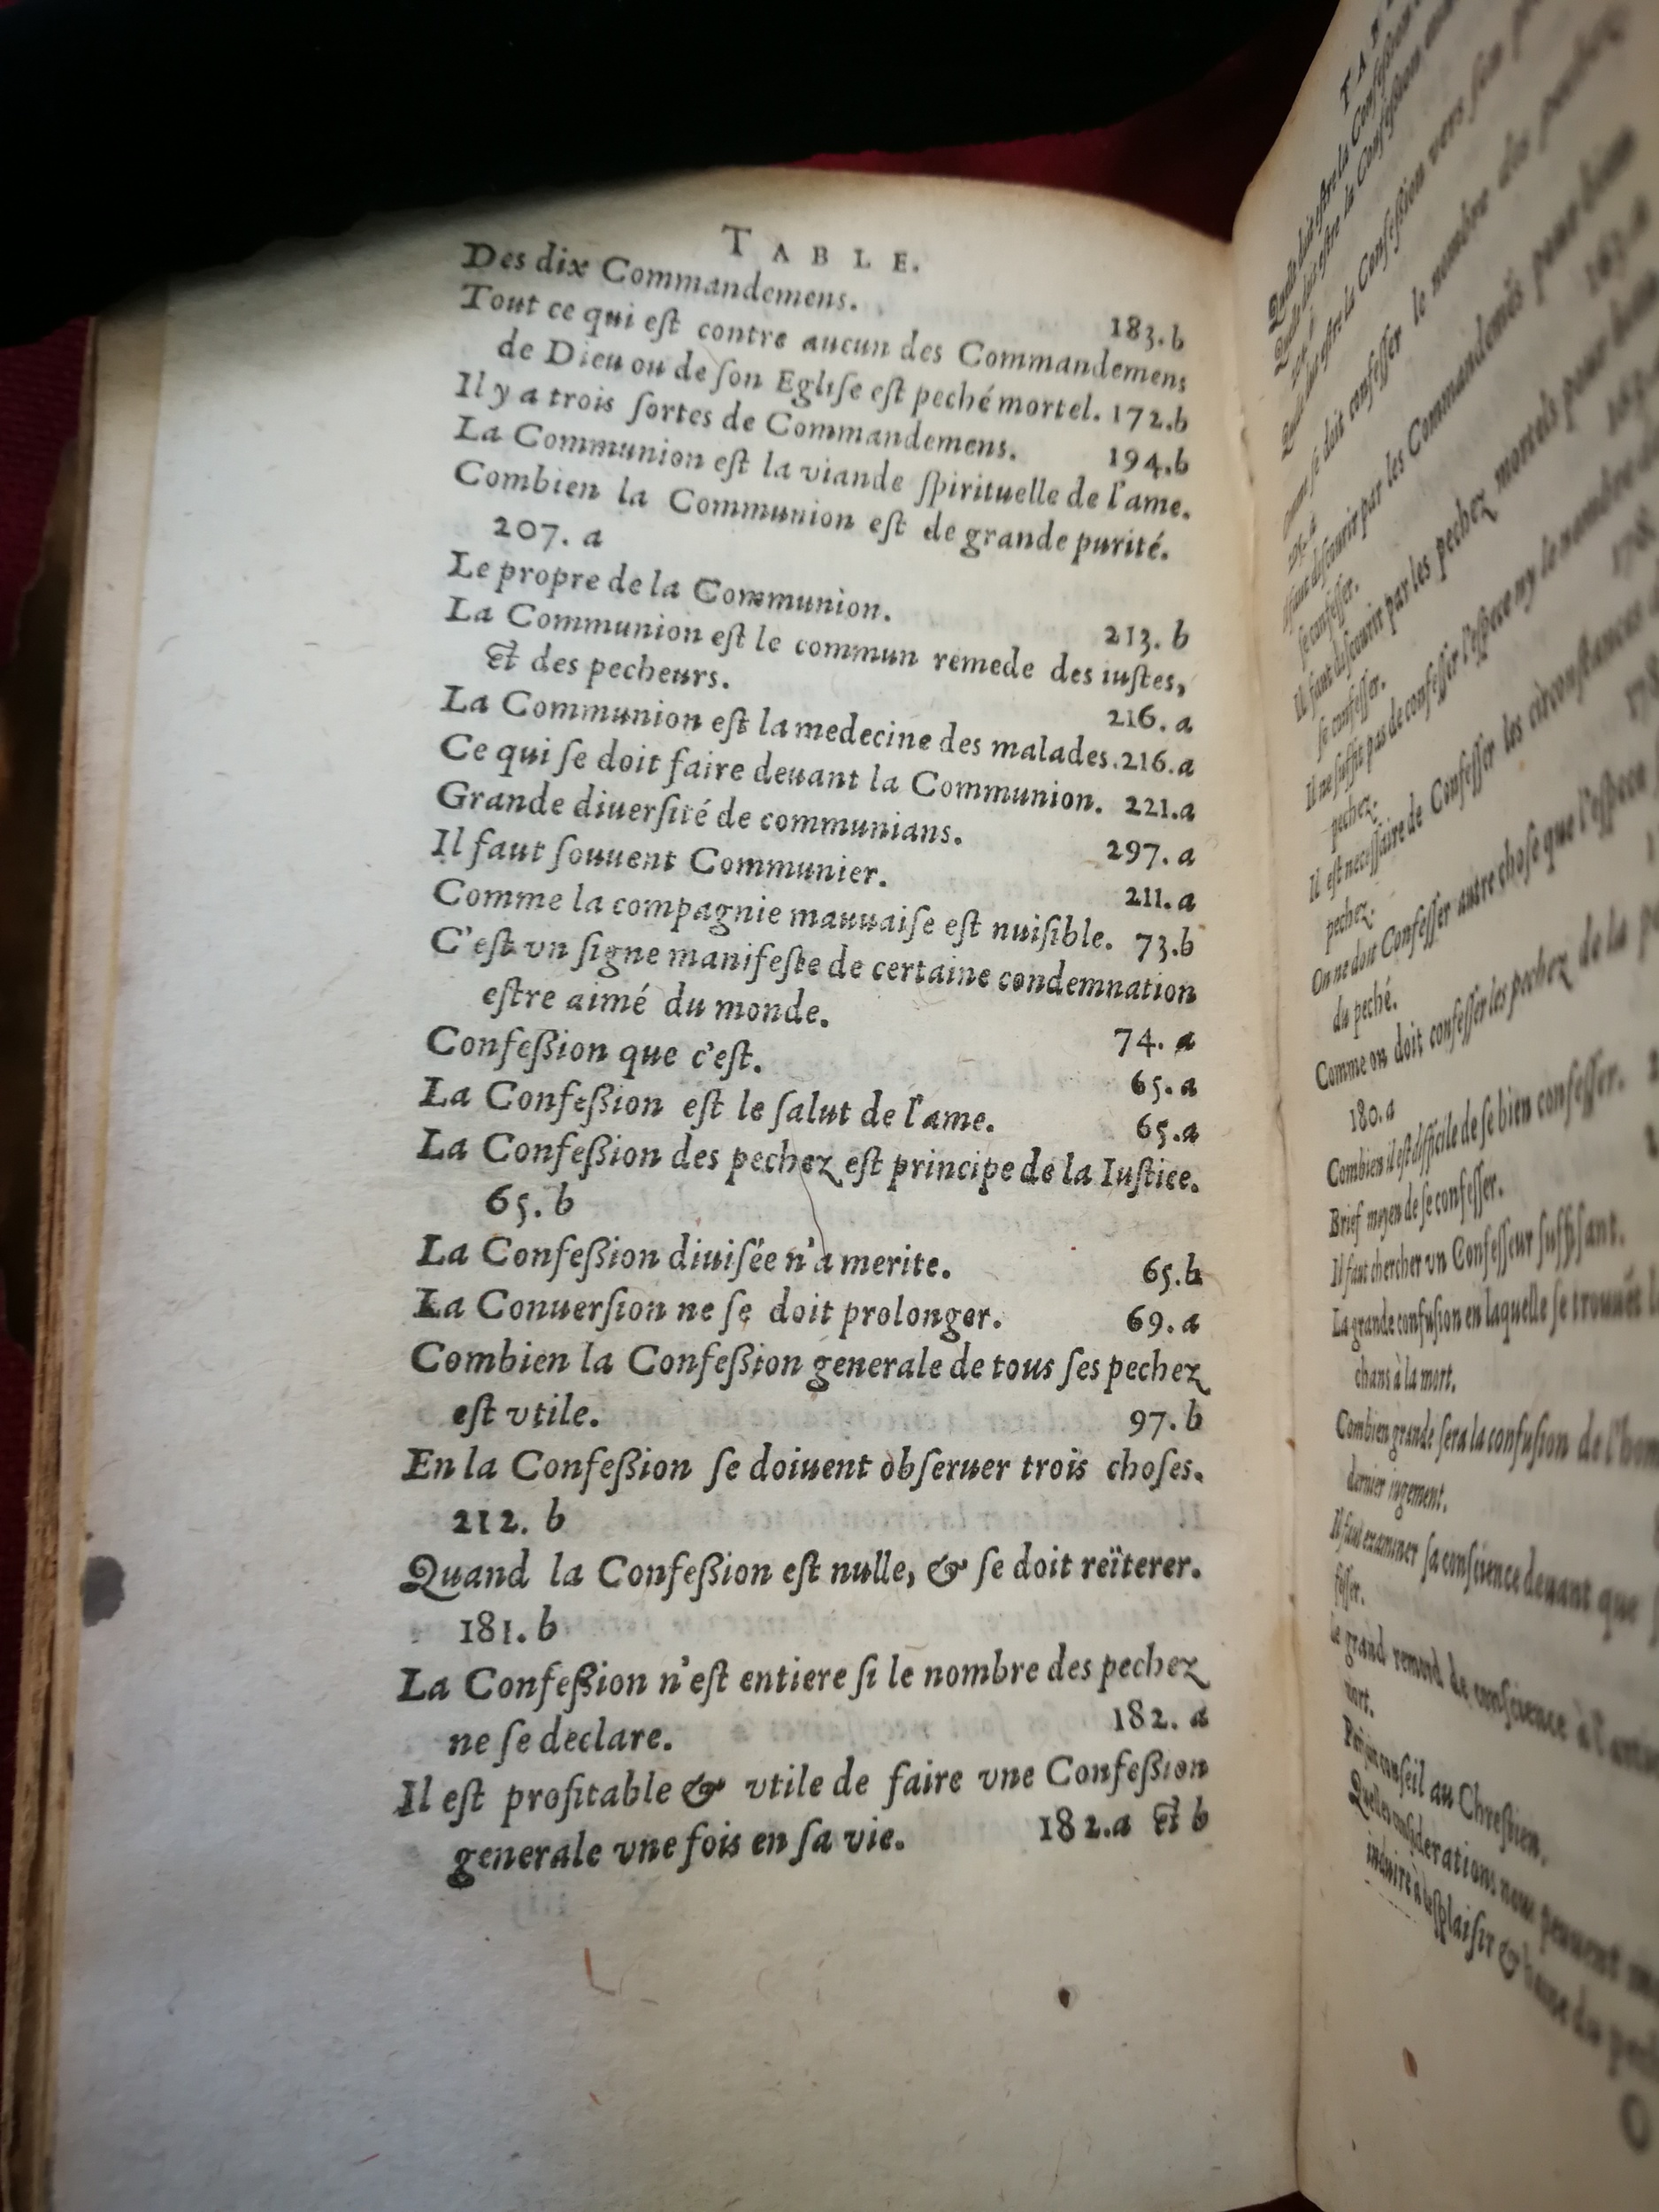 TABLE.
Des dix Commandemens. 183.b
Tout ce qui eſt contre aucun des Commandemens
de Dieu ou de ſon Egliſe eſt peché mortel. 172.b
Il y a trois ſortes de Commandemens. 194.b
La Communion eſt la viande ſpirituelle de l'ame.
Combien la Communion eſt de grande purité.
207. a
Le propre de la Communion. 213. b
La Communion eſt le commun remede des iuſtes,
Et des pecheurs. 216. a
La Communion eſt la medecine des malades. 216.a
Ce qui ſe doit faire deuant la Communion. 221.a
Grande diuerſité de communians. 297. a
Il faut ſouuent Communier. 211. a
Comme la compagnie mauuaiſe eſt nuiſible. 73.b
C'eſt vn ſigne manifeſte de certaine condemnation
eſtre aimé du monde. 74. a
Confeſſion que c'eſt. 65. a
La Confeſſion eſt le ſalut de l'ame. 65.a
La Confeſſion des pechez eſt principe de la Iuſtice.
65. b
La Confeſſion diuiſée n'a merite. 65.b
La Conuerſion ne ſe doit prolonger. 69. a
Combien la Confeſſion generale de tous ſes pechez
eſt vtile. 97. b
En la Confeſſion ſe doiuent obſeruer trois choſes.
212. b
Quand la Confeſſion eſt nulle, & ſe doit reïterer.
181. b
La Confeſſion n'eſt entiere ſi le nombre des pechez
ne ſe declare. 182. a
Il eſt profitable & vtile de faire vne Confeſſion
generale vne fois en ſa vie. 182.a Et b
ſe confeſſer.
Il faut diſcourir par les pechez mortels pour bien
ſe confeſſer.
Il ne ſuffit pas de confeſſer l'eſpece ny le nombre
pechez.
Il eſt neceſſaire de Confeſſer les circonſtances
pechez.
On ne doit Confeſſer autre choſe que l'eſpece
du peché.
Comme on doit confeſſer les pechez de la
180. a
Combien il eſt difficile de ſe bien confeſſer.
Brief moyen de ſe confeſſer.
Il faut chercher vn Confeſſeur ſuffiſant.
La grande confuſion en laquelle ſe trouuēt
chans à la mort.
Combien grande ſera la confuſion de l'hom
dernier iugement.
Il faut examiner ſa conſcience deuant que
feſſer.
grand remord de conſcience à l'
mort.
conſeil au Chreſtien.